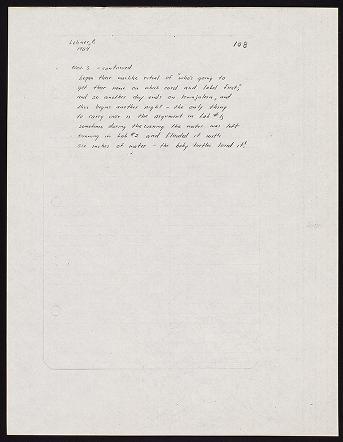 Lehner, P.
1969
108
Nov. 3 - continued
began their nightly ritual of "who's going to
get their name on which card and label first,"
and so another day ends on Kwajalein, and
thus begins another night - the only thing
to carry over is the argument in Lab #1;
sometime during the evening the water was left
running in Lab #2 and flooded it with
six inches of water - the baby turtles loved it!